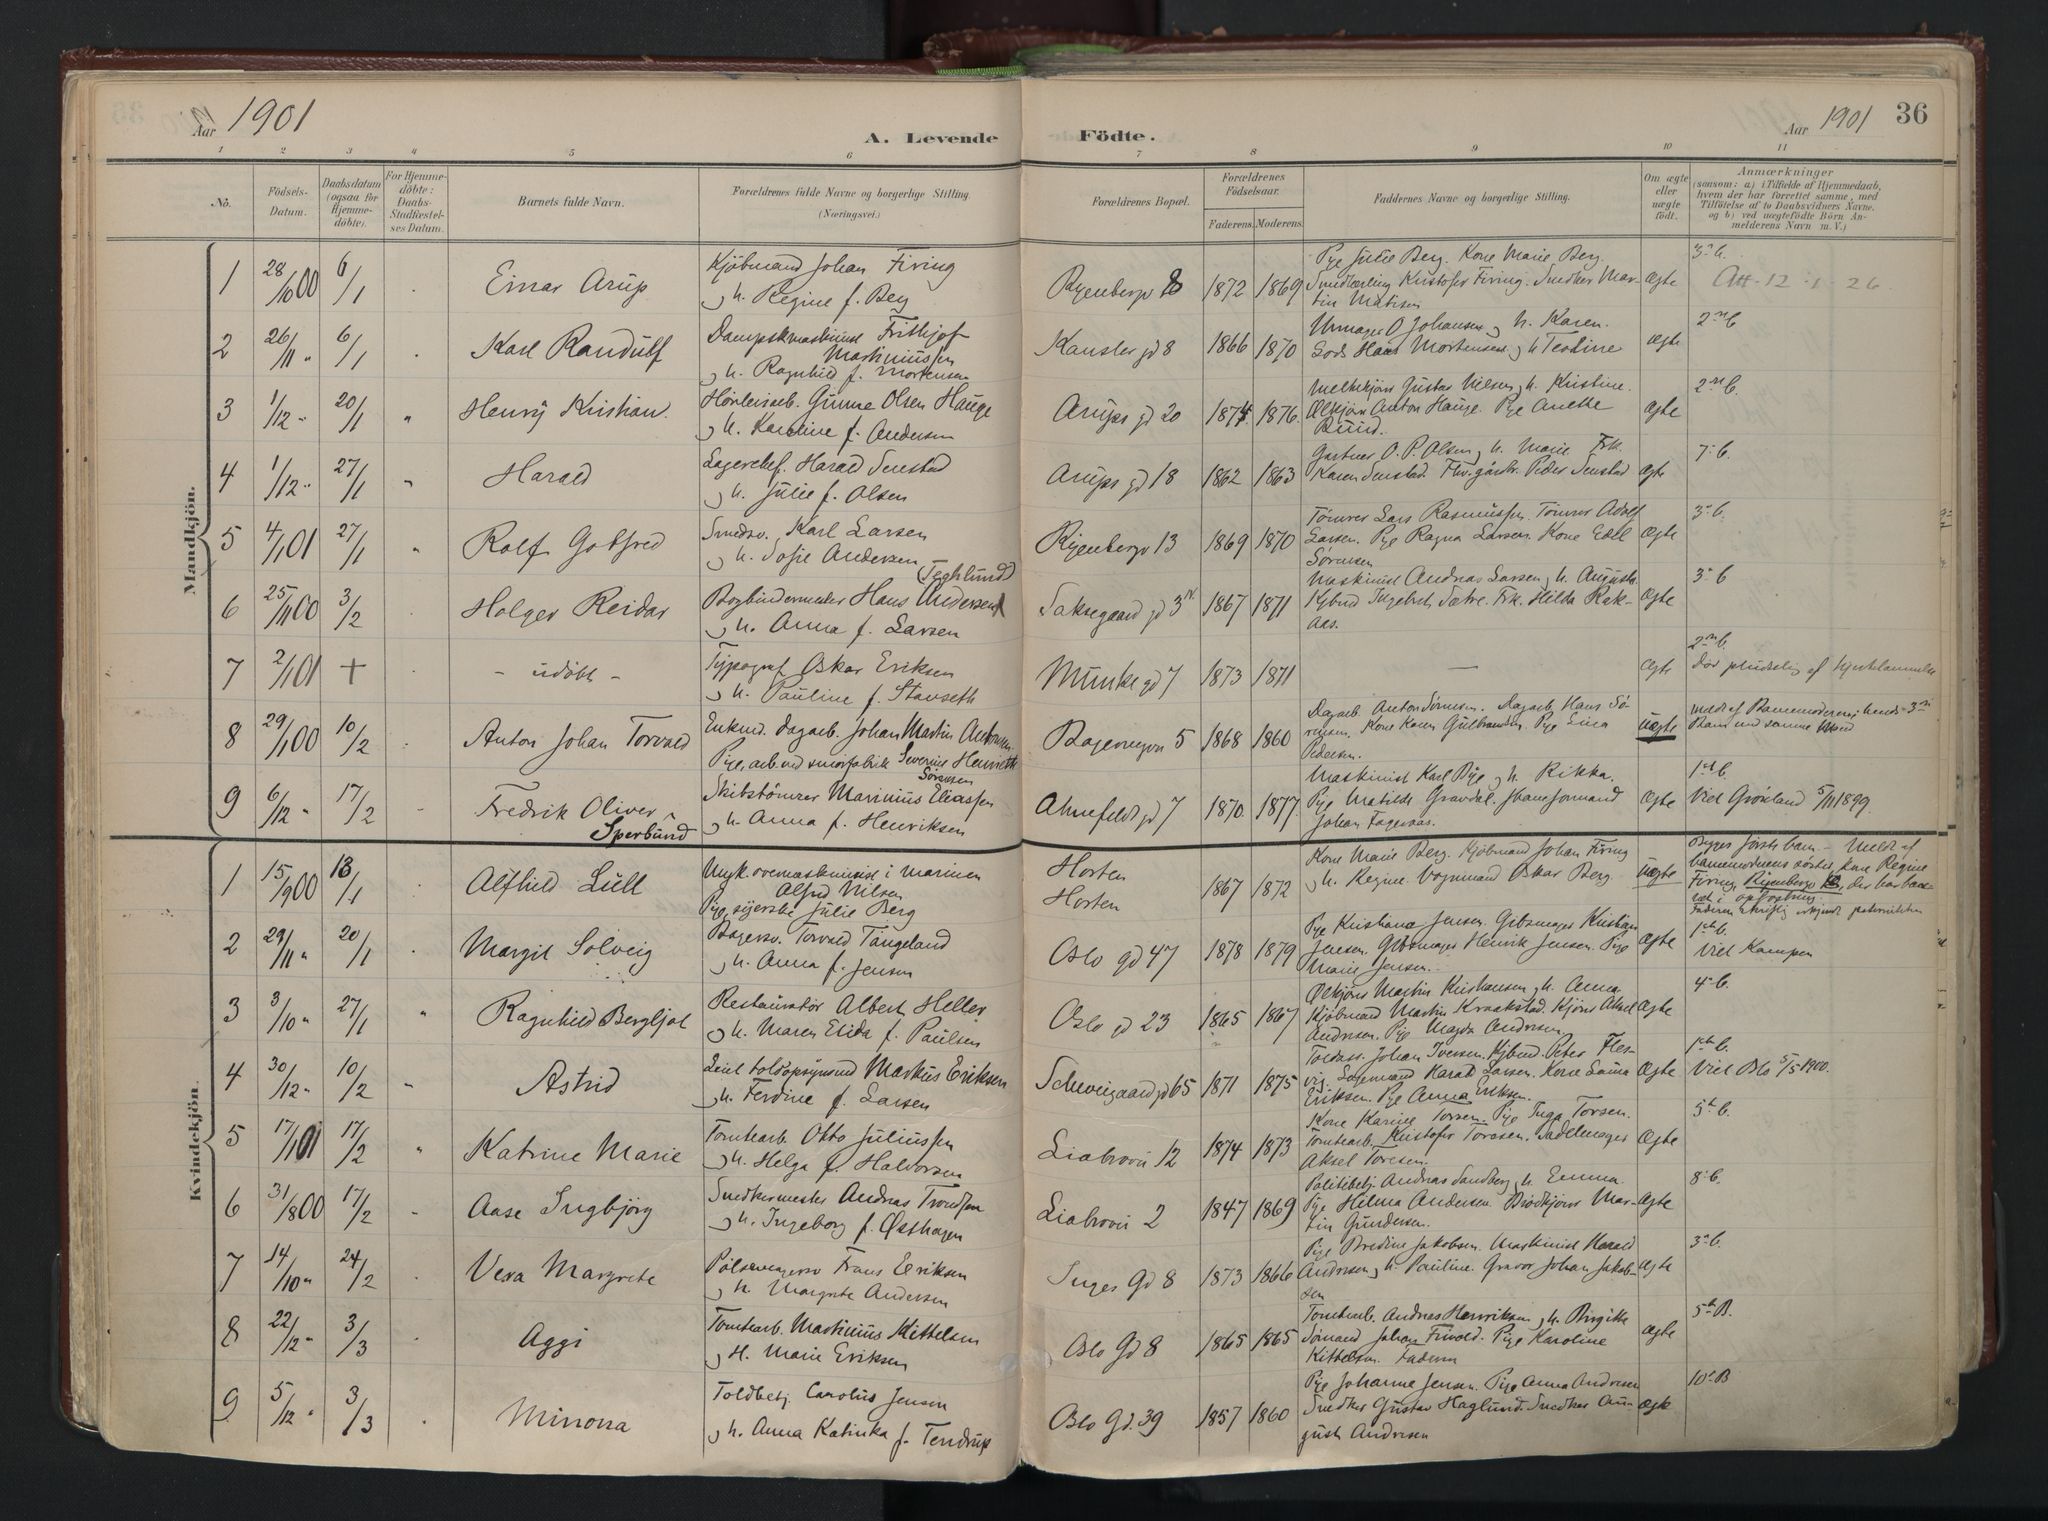 Aar 1901
A. Levende
1 2 3 4 5 6
No.
Födsels-Datum.
Daabsdatum (ogsaa for Hjemmedöbte).
For Hjemmedöbte: Daabs-Stadfæstelses Datum.
Barnets fulde Navn.
Forældrenes fulde Navne og borgerlige Stilling.
(Næringsvei.)
Födte.
Aar 1901
36
7 8 9 10 11
Forældrenes Bopæl.
Forældrenes Födselsaar.
Faderens. Moderens.
Faddernes Navne og borgerlige Stilling.
Om ægte eller uægte födt.
Anmærkninger
(saasom: a) i Tilfælde af Hjemmedaab,
hvem der har forrettet samme, med
Tilföielse af to Daabsvidners Navne.
og b) ved uægtefödte Börn Anmelderens Navn m. V.)
Mandkjön.
1 28/10 00 6/1 Einar Arup
Kjöbmand Johan Firing
og h. Regine f. Berg
Ryenbergv 8 1872 1869
Pige Julie Berg. Kone Marie Berg.
Smedlærling Kristofer Firing. Snedker Martin Matisen
Ægte 3die b.
Att. 12-1-26.
2 26/11 " 6/1 Karl Randulf
Dampskmaskinist Frithjof
Martiniussen
og h. Ragnhild f. Mortensen
Kansler gd 8 1866 1870
Urmager O Johansen og h. Karen.
Gods Hans Mortensen og h Teodine
Ægte 2net b
3 1/12 " 20/1 " Henry Kristian.
Gunne Olsen Hauge
og h. Karoline f. Andersen
Arups gd 20 1874. 1876.
Melkekjører Gustav Nilsen og h. Kristine.
Ølkjører Anton Hauge. Pige Anethe
Ruud.
Ægte 2net b.
4 1/12 " 27/1 " Harald
Lagerchef. Harald Senstad
og h. Julie f. Olsen
Arups gd 18 1862 1863
Gartner O. P. Olsen og h. Marie Frk.
Karen Senstad. Fhv. gårdbr. Peder Senstad
Ægte 7de b.
5 4/1 01 27/1 " Rolf Gotfred
Smedsv. Karl Larsen
og h. Sofie Andersen
Ryenbergv 13 1869 1870
Tømrer Lars Rasmussen. Tömrer Adolf
Larsen. Pige Ragna Larsen. Kone Edel
Sörensen
Ægte 3die b.
6 25/11 00 3/2 Holger Reidar
(Teghlund)
Bogbindermester Hans Andersen
og h. Anna f. Larsen
Saksegaard gd 3 IV 1867 1871
Maskinist Andreas Larsen og h. Augusta
Kjbmd Ingebret Sætre. Frk. Hilda Rakaas.
Ægte 3die b
7 2/1 01 + - udöbt -
Typograf Oskar Eriksen
og h. Pauline f. Stavseth
Munke gd 7 1873 1871
—
Ægte 2net b
Död pludselig af hjertelammelse
8 29/1 00 10/2 Anton Johan Torvald
Enkmd. Dagarb. Johan Martin Antonsen
Pige, arb. ved smörfabrik Severine Henriette
Sörensen
Bagerengen 5 1868 1860
Dagarb. Anton Sörensen. Dagarb. Hans Sörensen. Kone Karen Gulbrandsen. Pige Lina
Pedersen.
Uægte
Meldt af Barnemoderen; hendes 3die
Barn med samme Mand
9 6/12 " 17/2 Fredrik Oliver
Sperbund
Skibstömrer Marinius Eliassen
og h. Anna f. Henriksen
Ahnefeldt gd 7 1870. 1877.
Maskinist Karl Bye og h. Rikka.
Pige Matilde Gravdal.
Johan Fageraas.
Ægte 1ste b.
Viet Grönland 5/11 1899.
Kvindekjön.
1 15/9 00 13/1 Alfhild Lull
Ungk. overmaskinist i Marinen
Alfred Nilsen
Pige, syerske Julie Berg
Horten
Horten 1867 1872
Kone Marie Berg. Kjöbmand Johan Firing
og h. Regine. Vognmand Oskar Berg.
Uægte
Begges förste barn. – Meldt af
barnemoderens söster kone Regine
Firing, Ryenbergv 8, der har barnet i opfostring.
Faderen skriftlig erkjendt paterniteten
2 29/11 " 20/1 Margit Solveig
Bagersv. Torvald Tangeland
og h. Anna f. Jensen
Oslo gd 47 1878 1879
Pige Kristiana Jensen. Gibsmager Kristian
Jensen. Gibsmager Henrik Jensen. Pige
Marie Jensen.
Ægte 1ste b.
Viet Kampen
3 3/10 " 27/1 " Ragnhild Bergljot
Restauratør Albert Heller
og h. Maren Elida f. Paulsen
Oslo gd 23 1865 1867
Ølkjører Martin Kristiansen og h. Anna
Kjöbmand Martin Kraakstad. Kjører Aksel
Andresen. Pige Magda Andresen.
Ægte 4de b.
4 30/12 " 10/2 " Astrid
Markus Eriksen
og h. Ferdine f. Larsen
Schweigaard gd 65 1871 1875
Toldass. Johan Iversen. Kjbmd. Peter
Lagemand Karat Larsen. Kone Laura
Eriksen. Pige Anna Eriksen.
Ægte 1ste b.
Viet Oslo 5/5 1900.
5 17/1 01 17/2 " Katrine Marie
Tomtearb. Otto Juliussen
og h. Helga f. Halvorsen
Liabrovei 12 1874 1873
Kone Karine Torsen. Pige Inga Torsen.
Tomtearb. Kristofer Toresen. Sadelmager
Aksel Toresen.
Ægte 5te b.
6 31/8 00 17/2 Aase Ingbjörg
Snedkermester Andreas Trondsen
og h. Ingeborg f. Østhagen
Liabrovei 2 1847 1869
Politibetj. Andreas Sandberg og h. Emma.
Pige Helma Andersen. Brödkjører Martin Gundersen.
Ægte 8de b.
7 14/10 " 24/2 Vera Margrete
Pölsemagersv Frans Eriksen
og h. Margrete Andersen
Inges Gd 8 1873 1866
Pige Bredine Jakobsen. Maskinist Harald
Andresen og h. Pauline. Gravør Johan Jakobsen
Ægte 3die b.
8 22/12 " 3/3 Aggi
Tomtearb. Martinius Kittelsen
og H. Marie Eriksen
Oslo Gd 8 1865 1865
Tomtearb. Andreas Henriksen og h. Birgitte
Sömand Johan Frivold. Pige Karoline
Kittelsen. Faderen
Ægte 5te B.
9 5/12 " 3/3 Minona
Toldbetj. Carolus Jensen
og h. Anna Katinka f. Tendrup
Oslo Gd. 39 1857 1860
Pige Johanne Jensen. Pige Anna Andresen
Snedker Gustav Haglund. Snedker August Andresen
Ægte 10de B